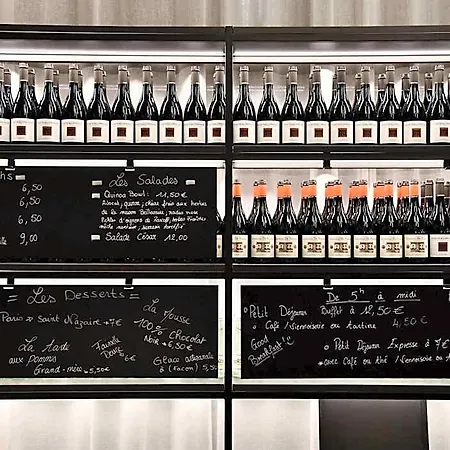 hs
6,50
6,50
6,50
9,00
Les Salades
Quinoa Bowl: 11,50€
Avocat, quinoa, chèvre frais aux herbes
de la maison Bellevaire, radis rose
Salade César 12,00
= Les Desserts =
Paris => Saint Nazaire → 7€
La Tarte
aux Pommes
Grand-mère → 5,50€
6€
La Mousse
100% Chocolat
Noir → 6,50€
Glace artisanale
(façon) 5,50
De 5h à midi
Petit Déjeuner Buffet à 12,50€
Café / Viennoiserie ou tartine
4,50€
Good
Breakfast!
Petit Déjeuner Express à 7€
Café ou thé / Viennoiserie ou